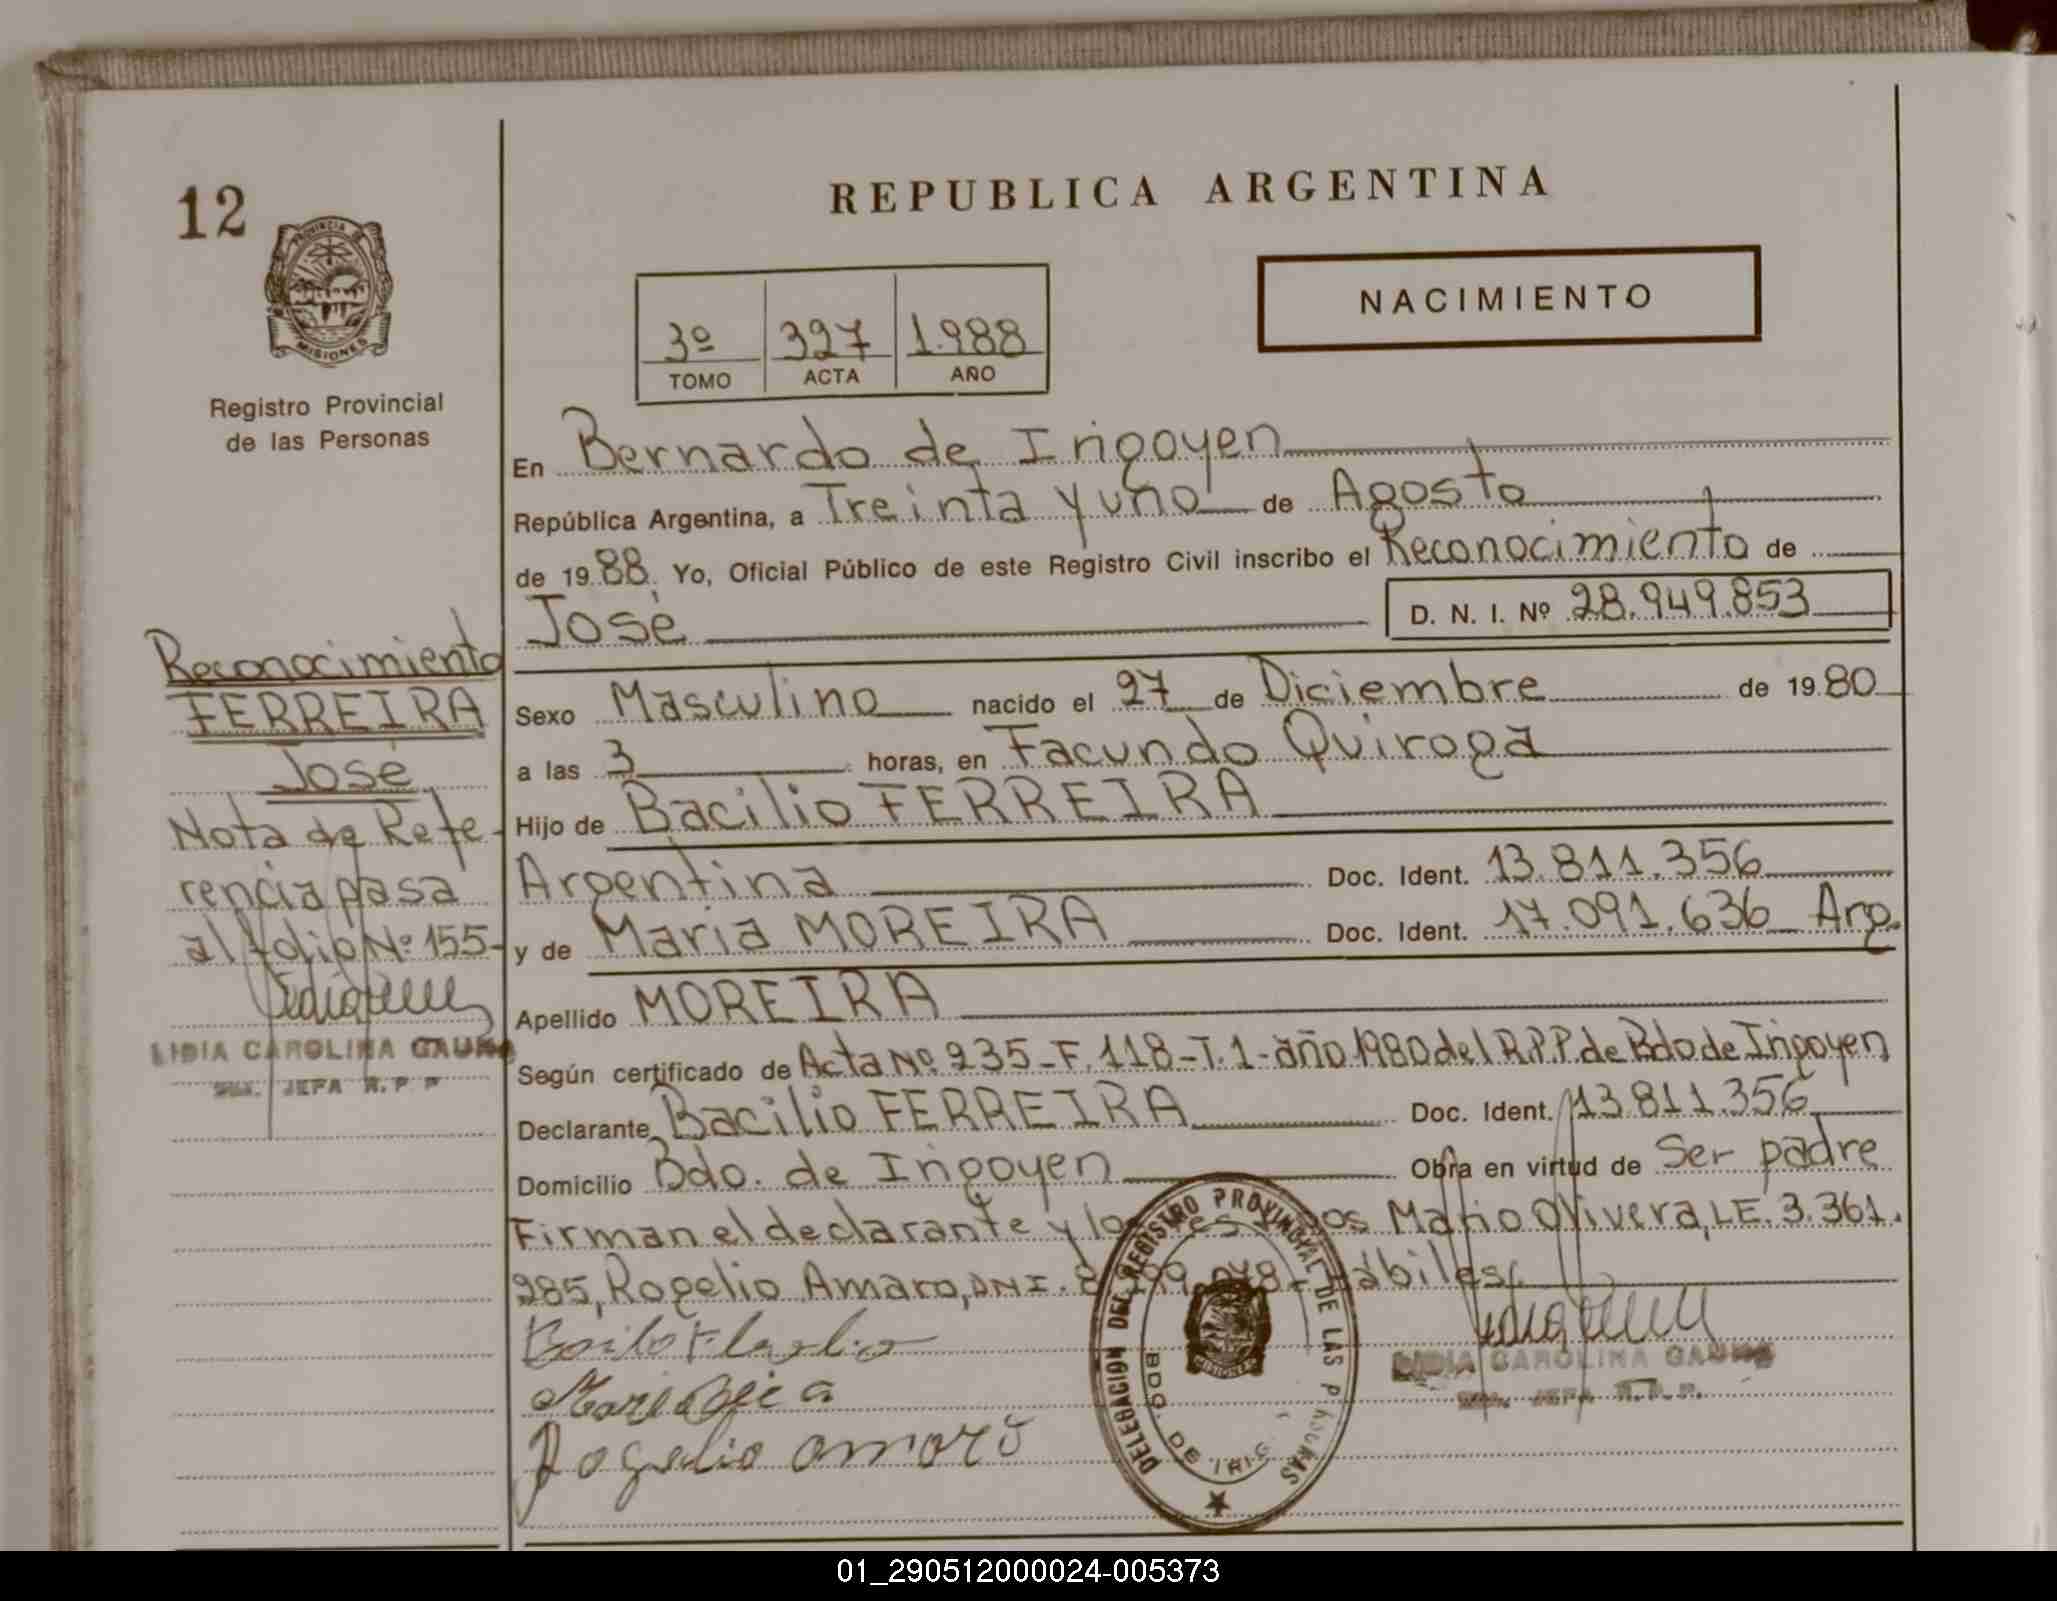 12
REPUBLICA ARGENTINA
PROVINCIA DE
MISIONES
NACIMIENTO
3º 327 1.988
TOMO ACTA AÑO
Registro Provincial
de las Personas
En Bernardo de Irigoyen
República Argentina, a Treinta y uno de Agosto
de 19 88. Yo, Oficial Público de este Registro Civil inscribo el Reconocimiento de
José D. N. I. Nº 28.949.853
Reconocimiento
FERREIRA
José
Nota de Refe-
rencia pasa
al folio Nº 155-
LIDIA CAROLINA GAUNA
JEFA R.P.P
Sexo Masculino nacido el 27 de Diciembre de 19 80
a las 3 horas, en Facundo Quiroga
Hijo de Bacilio FERREIRA
Argentina Doc. Ident. 13.811.356
y de Maria MOREIRA Doc. Ident. 17.091.636 Arg.
Apellido MOREIRA
Según certificado de Acta Nº 235-F.118-T.1-año 1980 del R.P.P de Bdo de Irigoyen
Declarante Bacilio FERREIRA Doc. Ident. 13.811.356
Domicilio Bdo. de Irigoyen Obra en virtud de Ser padre
Firman el declarante y los Mario Olivera, L.E. 3.361.
285, Rogelio Amaro, DNI. 8. hábiles.
Rogelio amaro
DELEGACION DEL REGISTRO PROVINCIAL DE LAS PERSONAS
BDO. DE IRIG
MISIONES
LIDIA CAROLINA GAUNA
JEFA R.P.P.
01_290512000024-005373